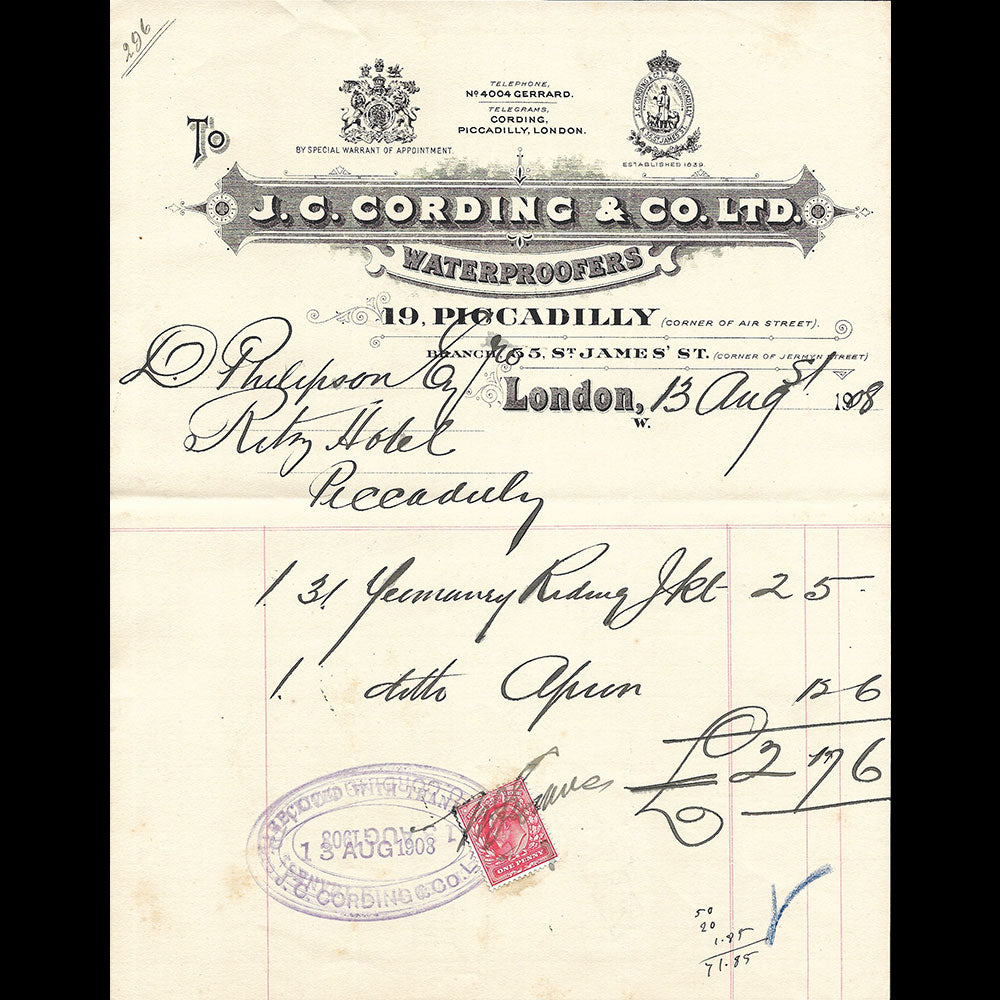 296
TELEPHONE,
No 4004 GERRARD.
TELEGRAMS,
CORDING,
PICCADILLY, LONDON.
BY SPECIAL WARRANT OF APPOINTMENT.
J. C. CORDING & CO. LTD. 19, PICCADILLY & 35, ST JAMES' ST.
ESTABLISHED 1839.
To
J. C. CORDING & CO. LTD.
WATERPROOFERS
19, PICCADILLY (CORNER OF AIR STREET).
BRANCH, 35, ST JAMES' ST. (CORNER OF JERMYN STREET)
London, 13 Augst 1908
W.
D. Philipson Esqre
Ritz Hotel
Piccadilly
1. 31 Yeomanry Riding Jkt 2 5 -
1. ditto Apron 12 6
£ 2 17 6
RECEIVED WITH THANKS
13 AUG 1908
J. C. CORDING & CO. L
ONE PENNY
50
20
1.85
71.85